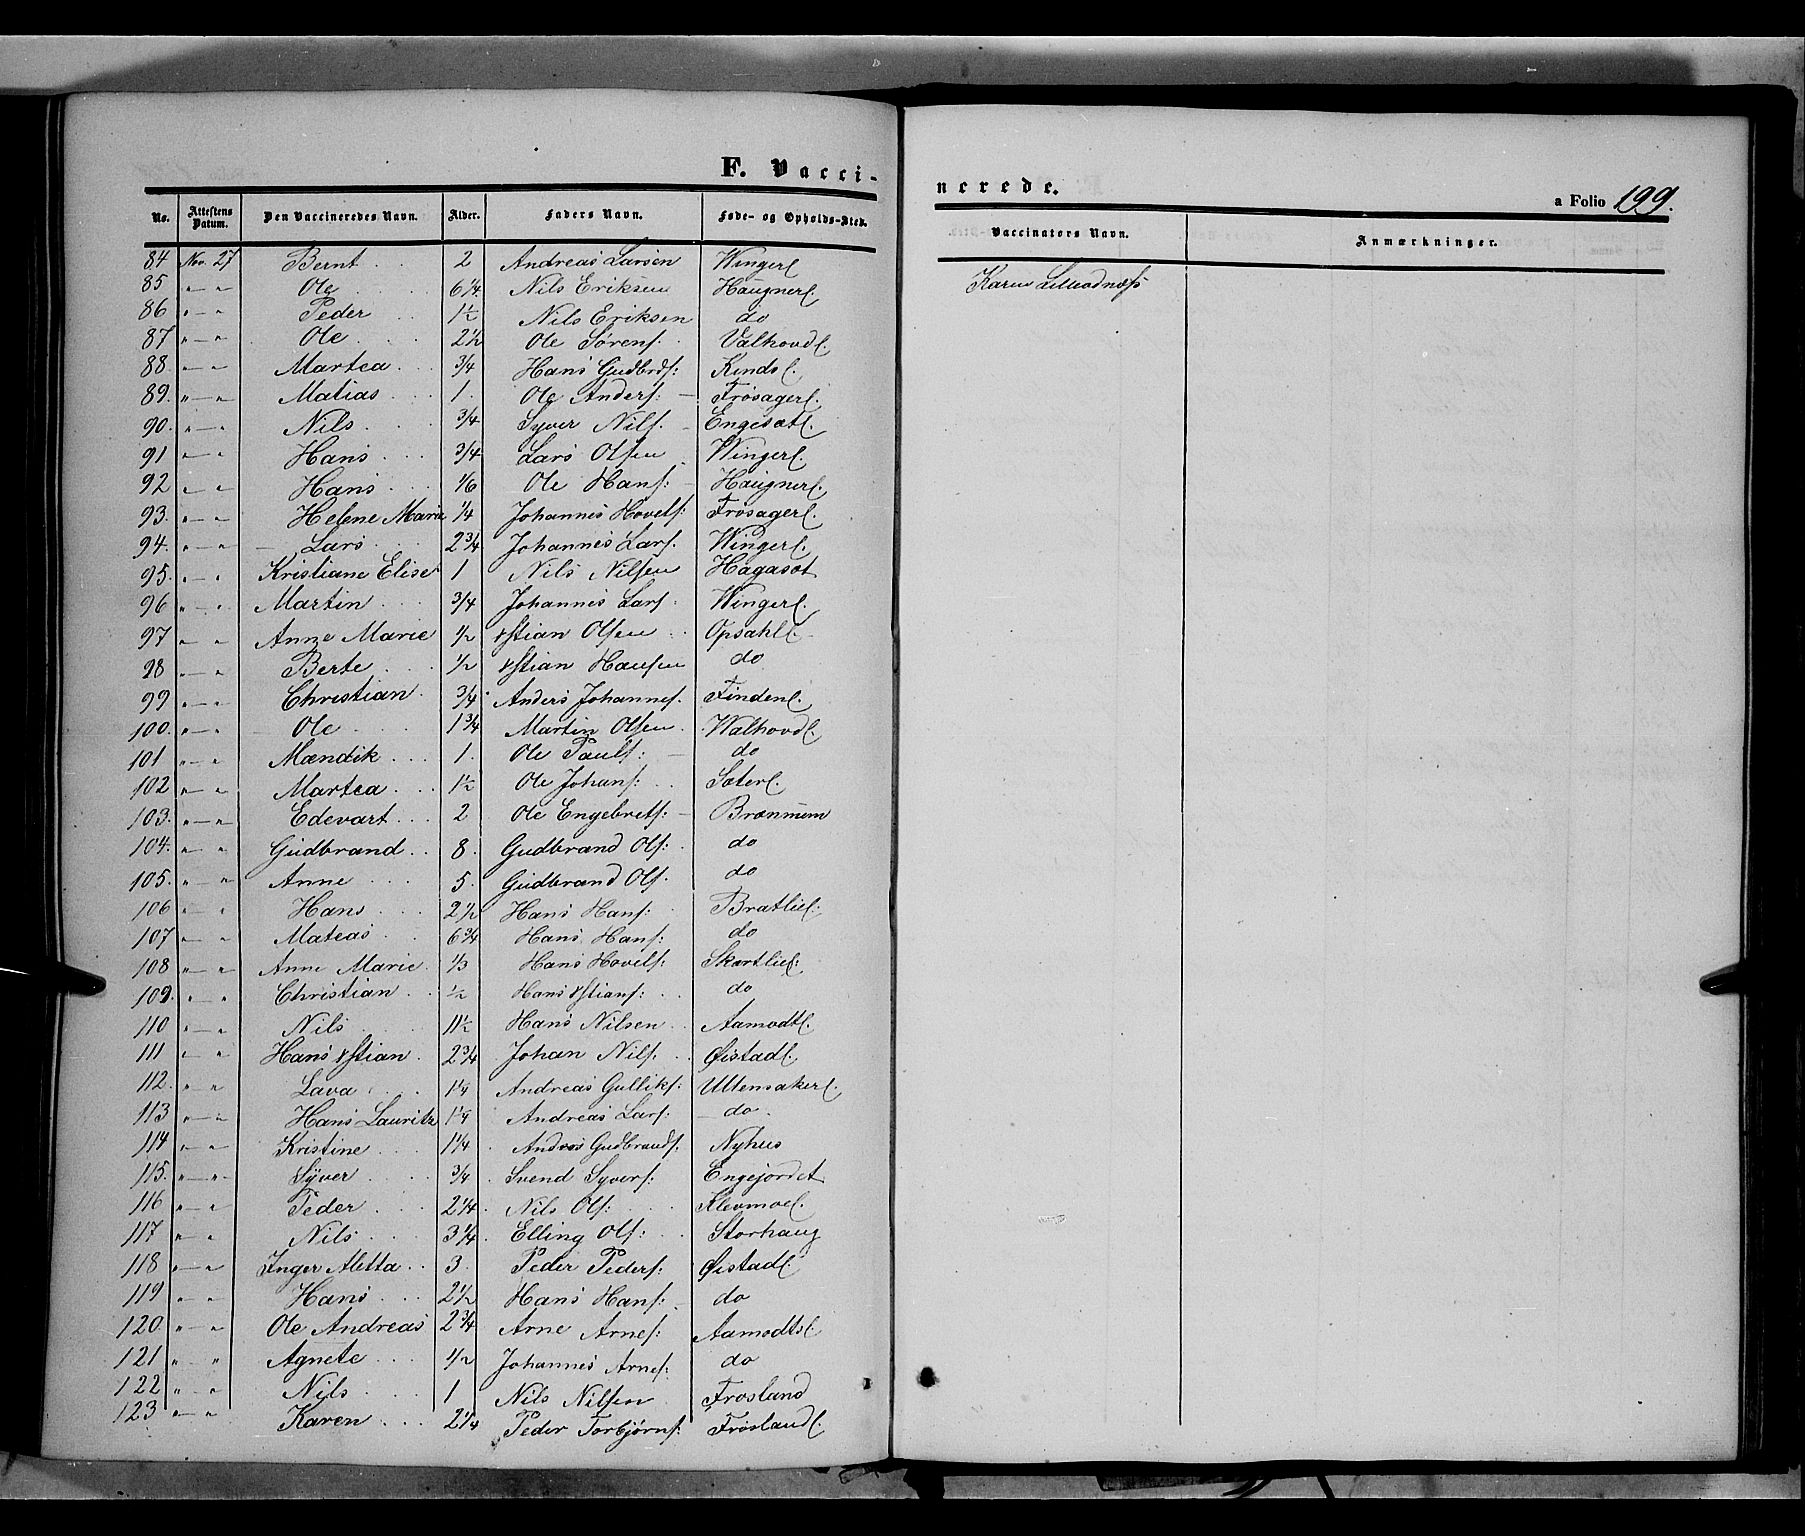 F. Vacci-
No. Attestens Datum. Den Vaccineredes Navn. Alder. Faders Navn. Føde- og Opholds-Sted.
84 Nov. 27 Bernt 2 Andreas Larsen Winger
85 " — " Ole 6 1/4 Nils Eriksen Haugner
86 " — " Peder 1 1/2 Nils Eriksen do
87 " — " Ole 2 1/2 Ole Sørens: Valhovd
88. " — " Martea 3/4 Hans Gudbrds: Kinds
89. " — " Matias 1. Ole Anders: Frøsager
90. " — " Nils 3/4 Syver Nils. Engesæt
91 " — " Hans 3/4 Lars Olsen Winger
92 " — " Hans 1/6 Ole Hans: Haugner
93. " — " Helene Marie 1/4 Johannes Hovels: Frøsager
94. " — " Lars 2 3/4 Johannes Lars. Winger
95. " — " Kristiane Elise 1 Nils Nilsen Hagasæt
96 " — " Martin 3/4 Johannes Lars: Winger
97 " — " Anne Marie 1/2 Xstian Olsen Opsahl
98 " — " Berte 1/2 Xstian Hansen do
99 " — " Christian 3/4 Anders Johannes. Finden
100. " — " Ole 1 3/4 Martin Olsen Walhovd
101 " — " Mændik 1. Ole Pauls: do
102 " — " Martea 1 1/2 Ole Johans: Sæter
103. " — " Edevart 2 Ole Engebrets: Brænnum
104. " — " Gudbrand 8. Gudbrand Ols: do
105. " — " Anne 5. Gudbrand Ols. do
106 " — " Hans 2 1/2 Hans Hans: Bratlie
107 " — " Mateas 6 3/4 Hans Hans: do
108 " — " Anne Marie 1/3 Hans Hovels: Skartlie
109. " — " Christian 1/2 Hans Xstians: do
110 " — " Nils 11 1/2 Hans Nilsen Aamodt
111 " — " Hans Xstian 2 3/4 Johan Nils: Øistad
112. " — " Lava 1 1/4 Andreas Gulliks: Ullensaker
113 " — " Hans Lauritz 1 1/4 Andreas Lars: do.
114 " — " Kristine 1 1/4 Andreas Gudbrands: Nyhus
115. " — " Syver 3/4 Svend Syvers: Engejordet
116 " — " Peder 2 1/4 Nils Ols: Klevmoe
117 " — " Nils 3 1/4 Elling Ols: Storhaug
118 " — " Inger Aletta 3. Peder Peders: Øistad
119 " — " Hans 2 1/2 Hans Hans: do
120. " — " Ole Andreas 2 3/4 Arne Arnes: Aamodts
121 " — " Agnete 1/2 Johannes Arnes: do
122 " — " Nils 1 Nils Nilsen Frøsland
123 " — " Karen 2 1/4 Peder Torbjørns: Frøsland
nerede.
a Folio 199.
Vaccinators Navn. Anmærkninger.
Karen